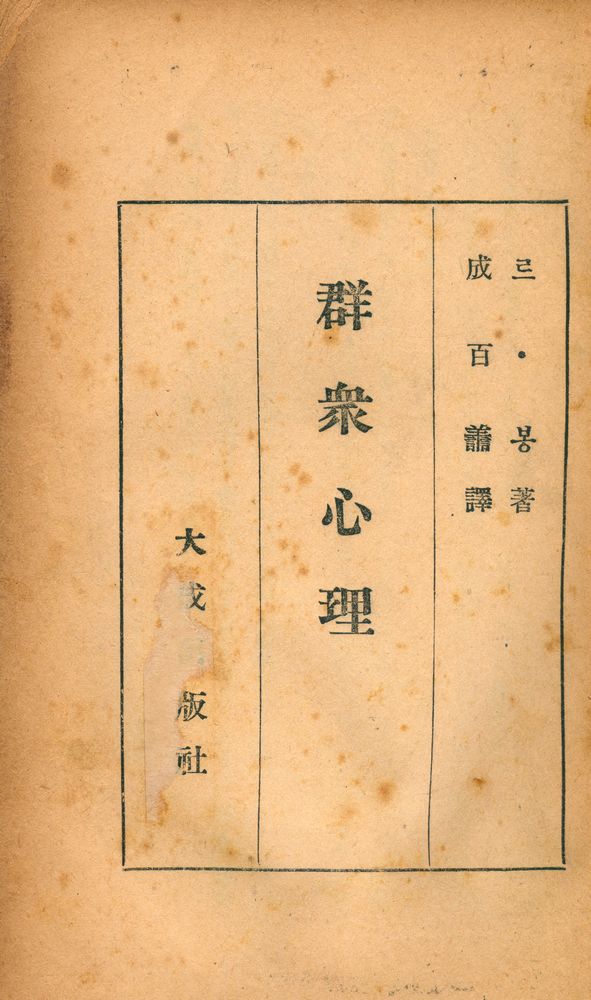 르・봉著
成百譱譯
群衆心理
大成 版社